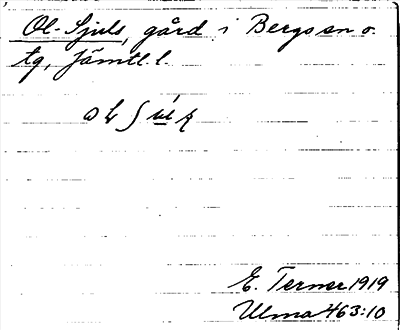 Ol-Sjuls, gård i Bergs sn o.
tg, Jämtl l.
E. Terner 1919
Ulma 463:10